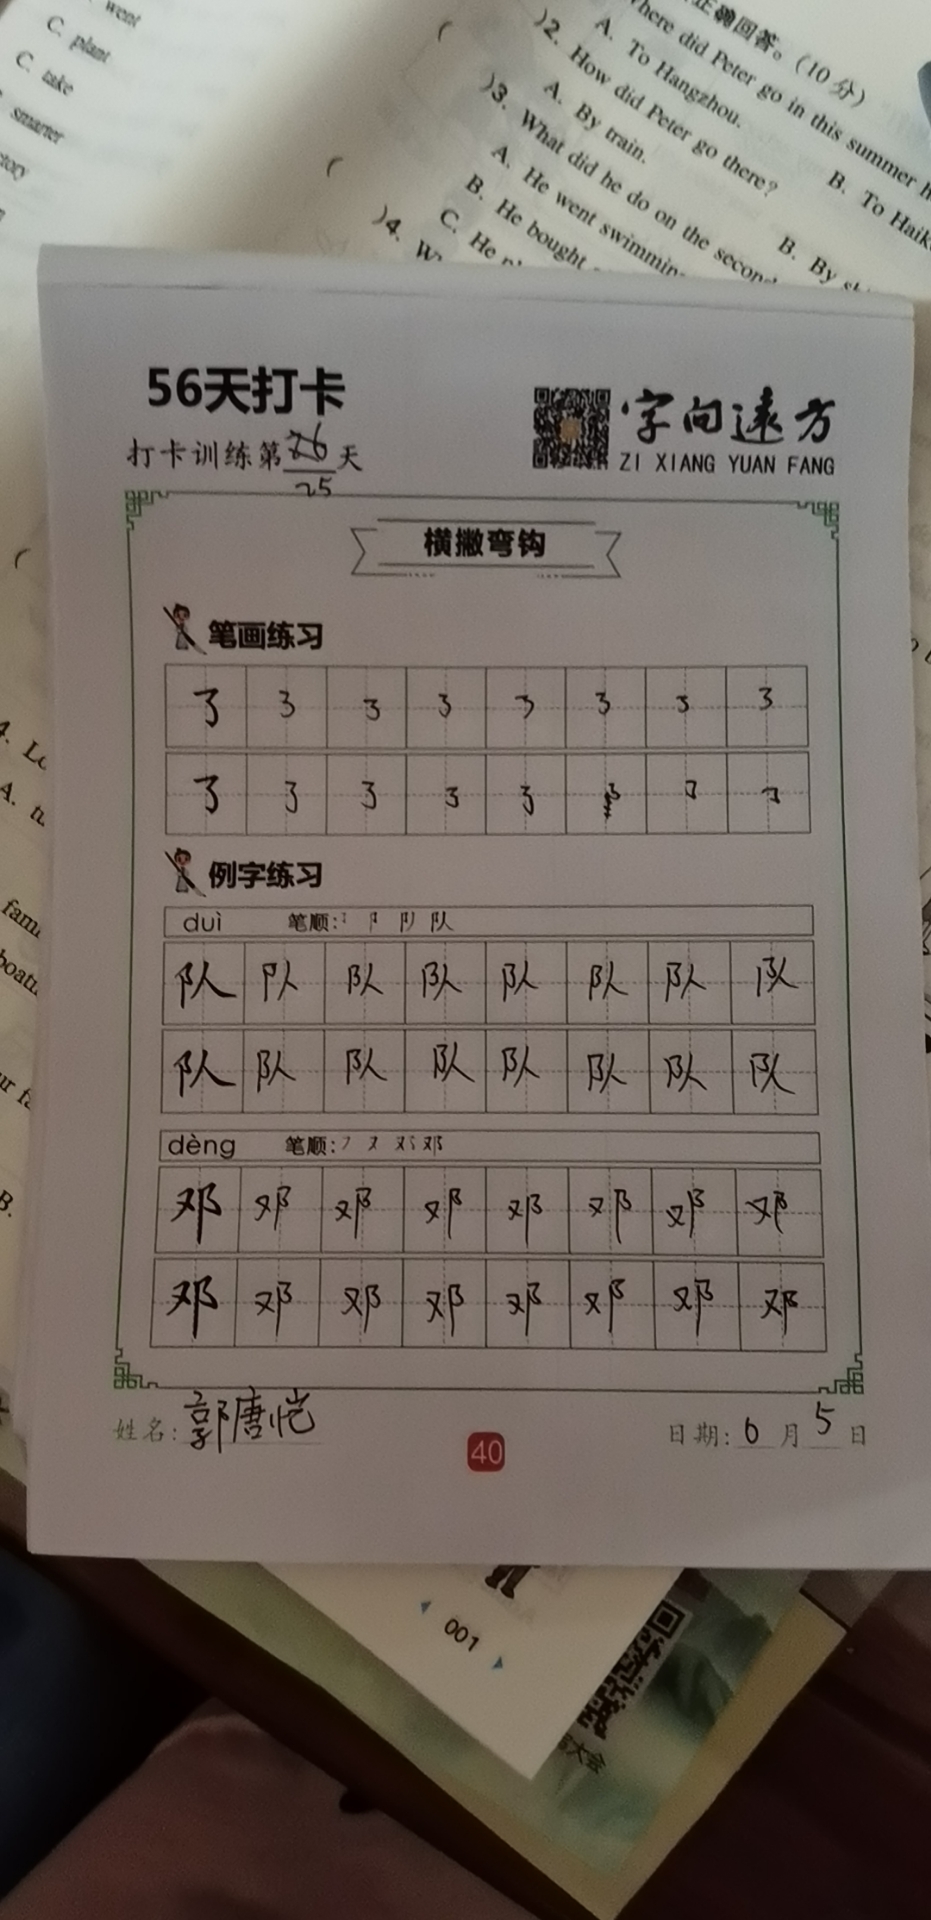 went
C. plant
C. take
smarter
正确回答。（10分）
here did Peter go in this summer
A. To Hangzhou.
B. To Haik
( )2. How did Peter go there?
A. By train.
B. By
( )3. What did he do on the second
A. He went swimming
B. He bought
C. He
( )4. W
56天打卡
打卡训练第26天
25
字向遠方
ZI XIANG YUAN FANG
横撇弯钩
笔画练习
例字练习
duì 笔顺: 队
队 队 队 队 队 队 队 队
队 队 队 队 队 队 队 队
dèng 笔顺: 邓
邓 邓 邓 邓 邓 邓 邓 邓
邓 邓 邓 邓 邓 邓 邓 邓
姓名: 郭唐恺
日期: 6月5日
40
001
大会